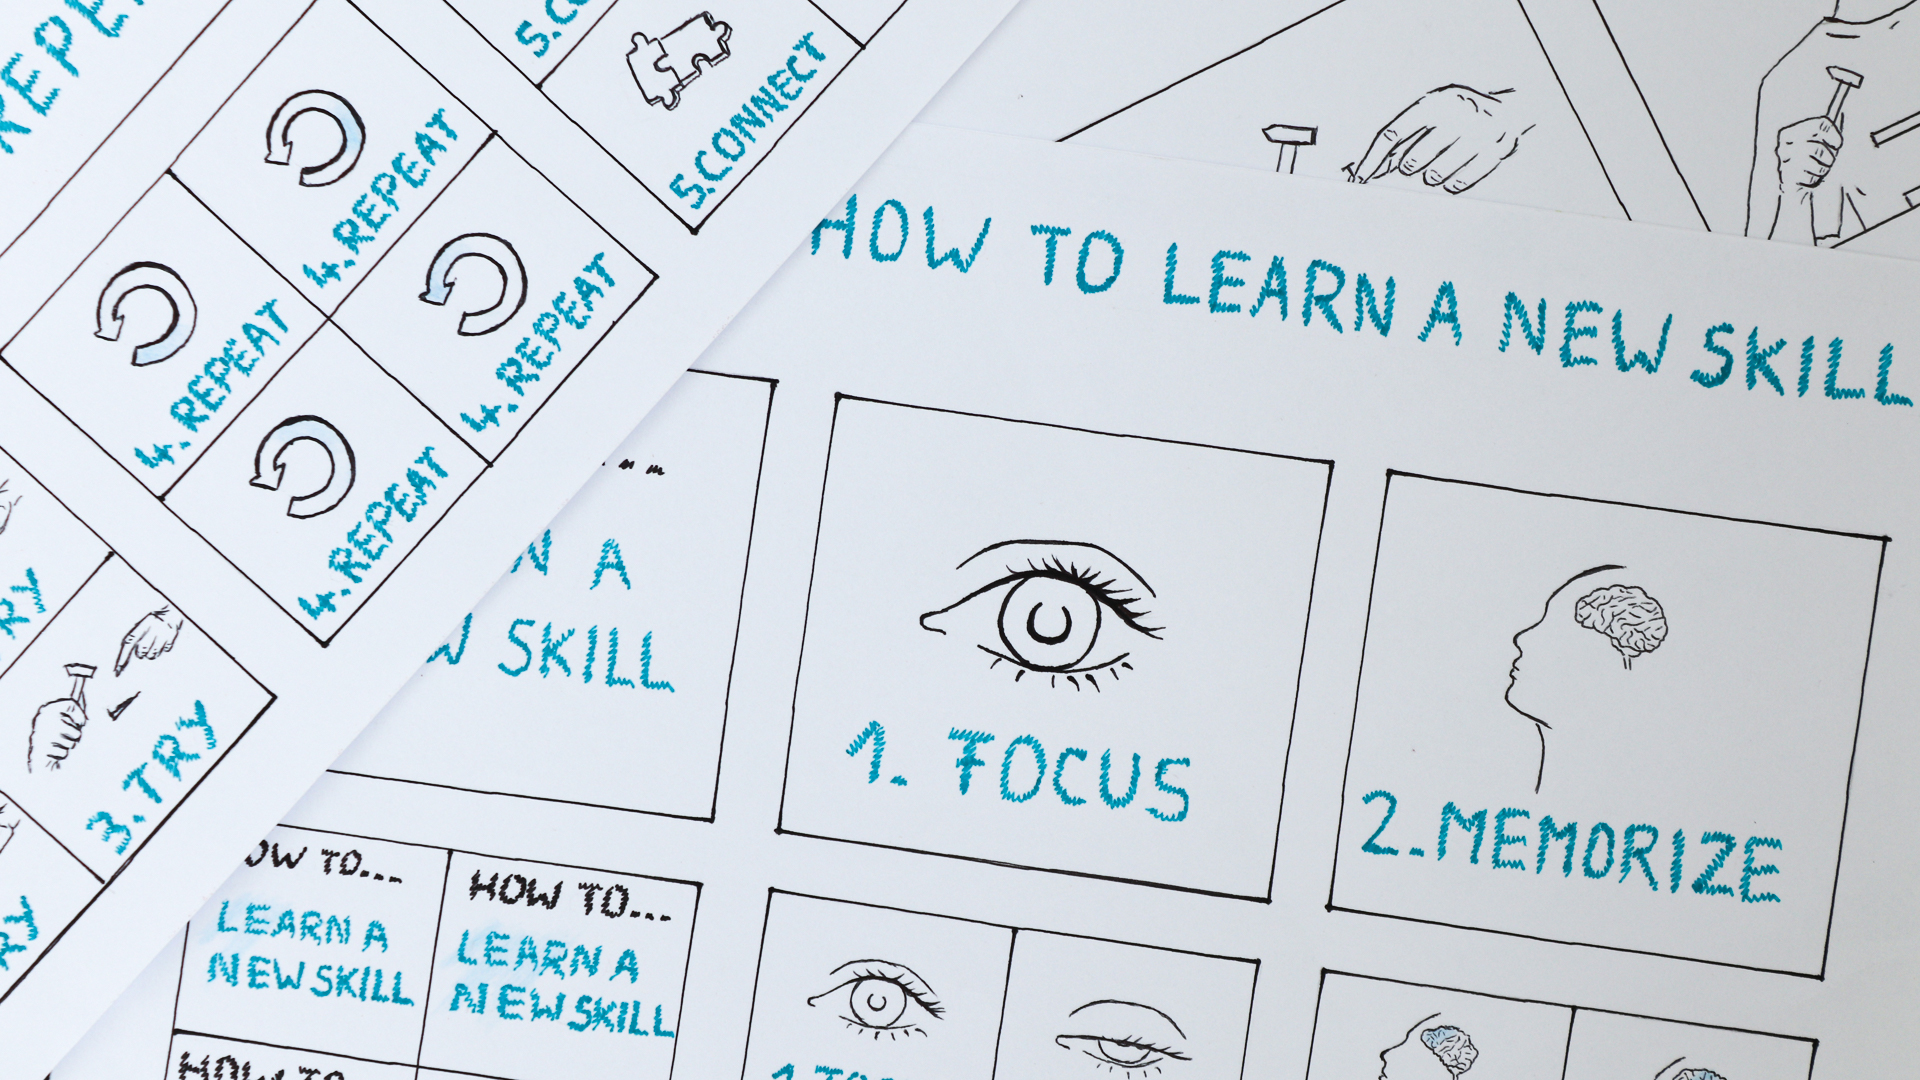 REPE
5.CO
5.CONNECT
4.REPEAT
4.REPEAT
4.REPEAT
4.REPEAT
3.TRY
RY
RY
HOW TO LEARN A NEW SKILL
N A
W SKILL
1. FOCUS
2.MEMORIZE
OW TO...
LEARN A
NEW SKILL
HOW TO...
LEARN A
NEW SKILL
HOW TO